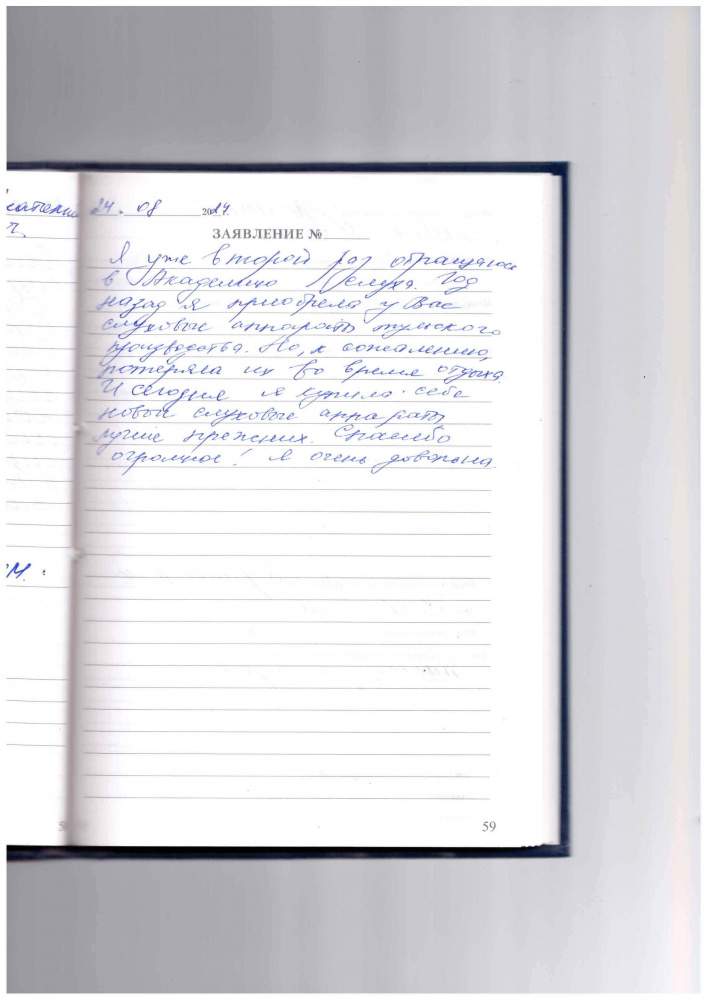 24. 08 2024
ЗАЯВЛЕНИЕ №
Я уже второй раз обращаюсь
в Академию слуха. Год
назад я приобрела у Вас
слуховые аппараты
производства. Но, к сожалению,
потеряла их во время отдыха.
И сегодня я купила себе
новые слуховые аппараты
лучше прежних. Спасибо
огромное! Я очень довольна.
59